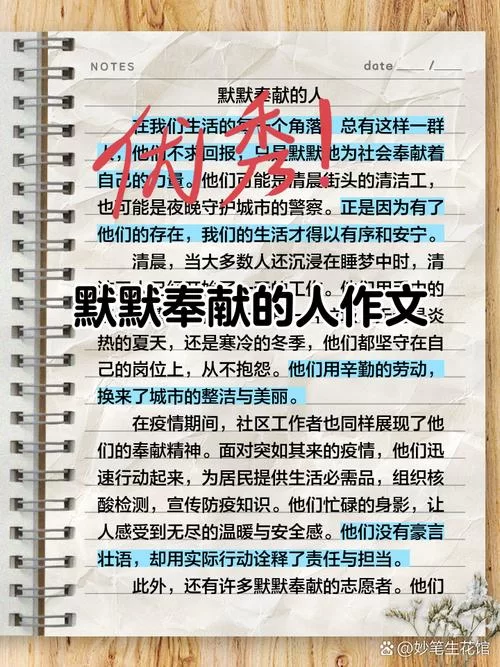 NOTES
date ____ / ___
默默奉献的人
在我们生活的每一个角落，总有这样一群
人，他们不求回报，只是默默地为社会奉献着
自己的力量。他们可能是清晨街头的清洁工，
也可能是夜晚守护城市的警察。正是因为有了
他们的存在，我们的生活才得以有序和安宁。
优秀！
清晨，当大多数人还沉浸在睡梦中时，清
默默奉献的人作文
热的夏天，还是寒冷的冬季，他们都坚守在自
己的岗位上，从不抱怨。他们用辛勤的劳动，
换来了城市的整洁与美丽。
在疫情期间，社区工作者也同样展现了他
们的奉献精神。面对突如其来的疫情，他们迅
速行动起来，为居民提供生活必需品，组织核
酸检测，宣传防疫知识。他们忙碌的身影，让
人感受到无尽的温暖与安全感。他们没有豪言
壮语，却用实际行动诠释了责任与担当。
此外，还有许多默默奉献的志愿者。他们
妙笔生花馆